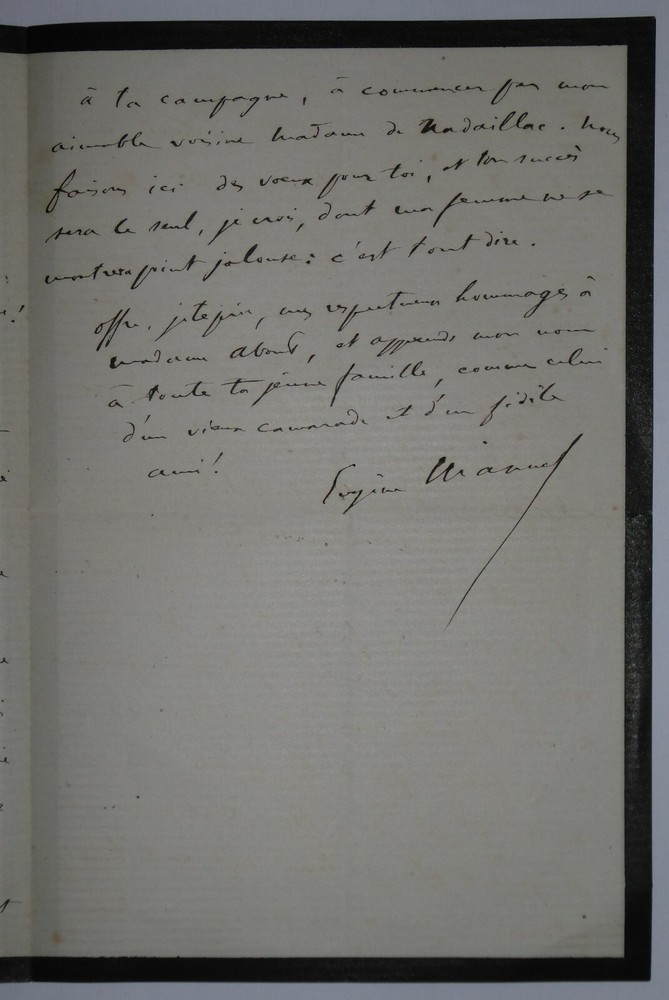 à ta campagne, à commencer par mon
aimable voisine madame de Nadaillac. Nous
faisons ici des vœux pour toi, et ton succès
sera le seul, je crois, dont ma femme ne se
montrera point jalouse : c'est tout dire.
Offre, je te prie, mes respectueux hommages à
madame About, et apprends mon nom
à toute ta jeune famille, comme celui
d'un vieux camarade et d'un fidèle
ami !
Eugène Manuel